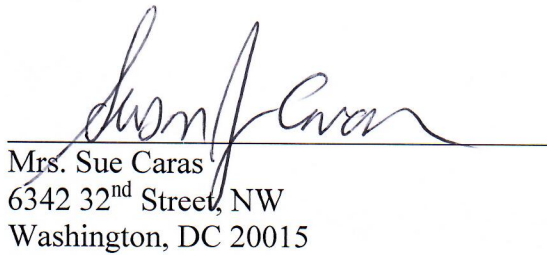 Susan J Caras
Mrs. Sue Caras
6342 32nd Street, NW
Washington, DC 20015